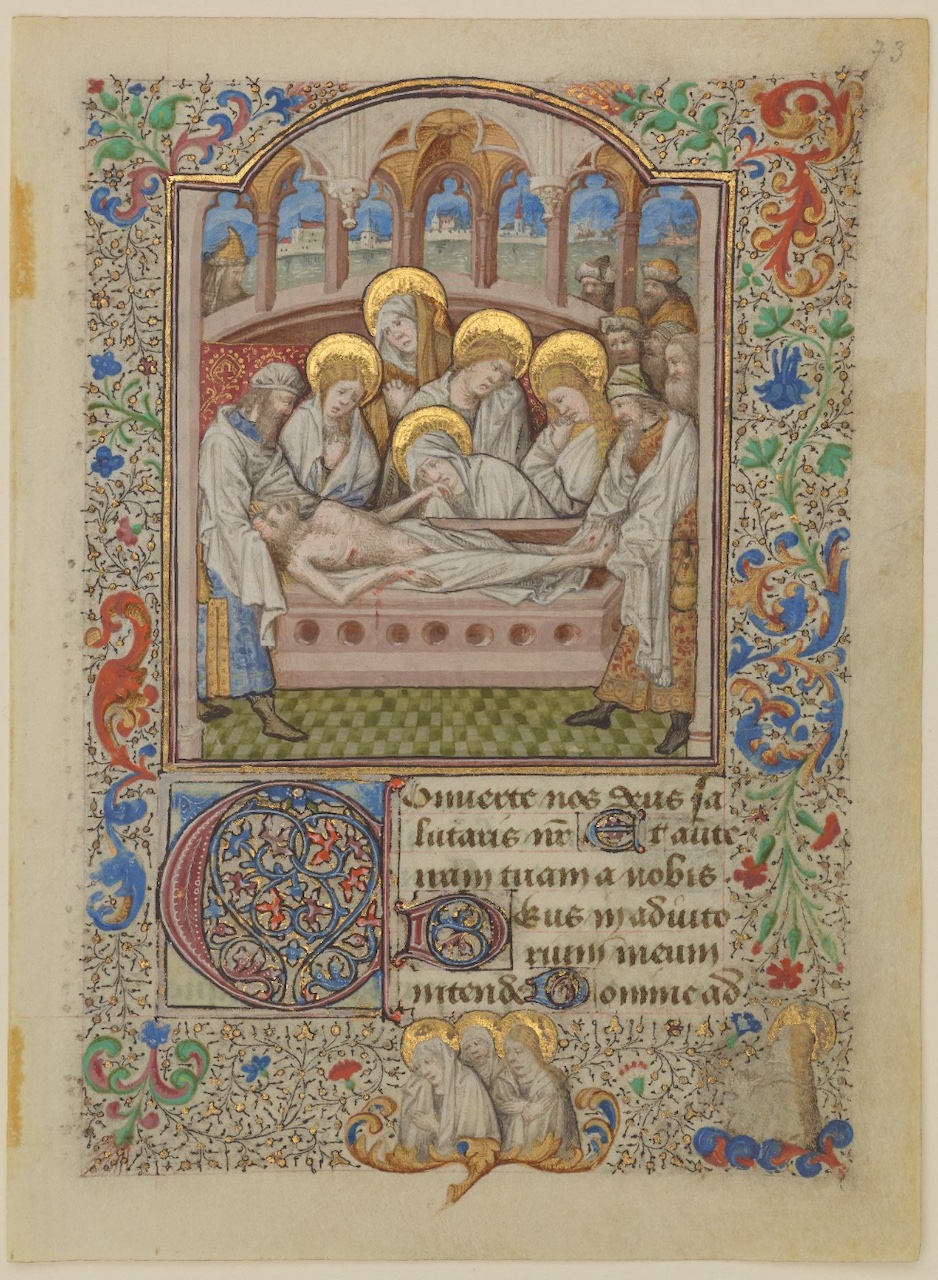 73
Conuerte nos deus sa
lutaris nr̄ Et auerte
iram tuam a nobis
Deus in adiuto
rium meum
intende Domine ad